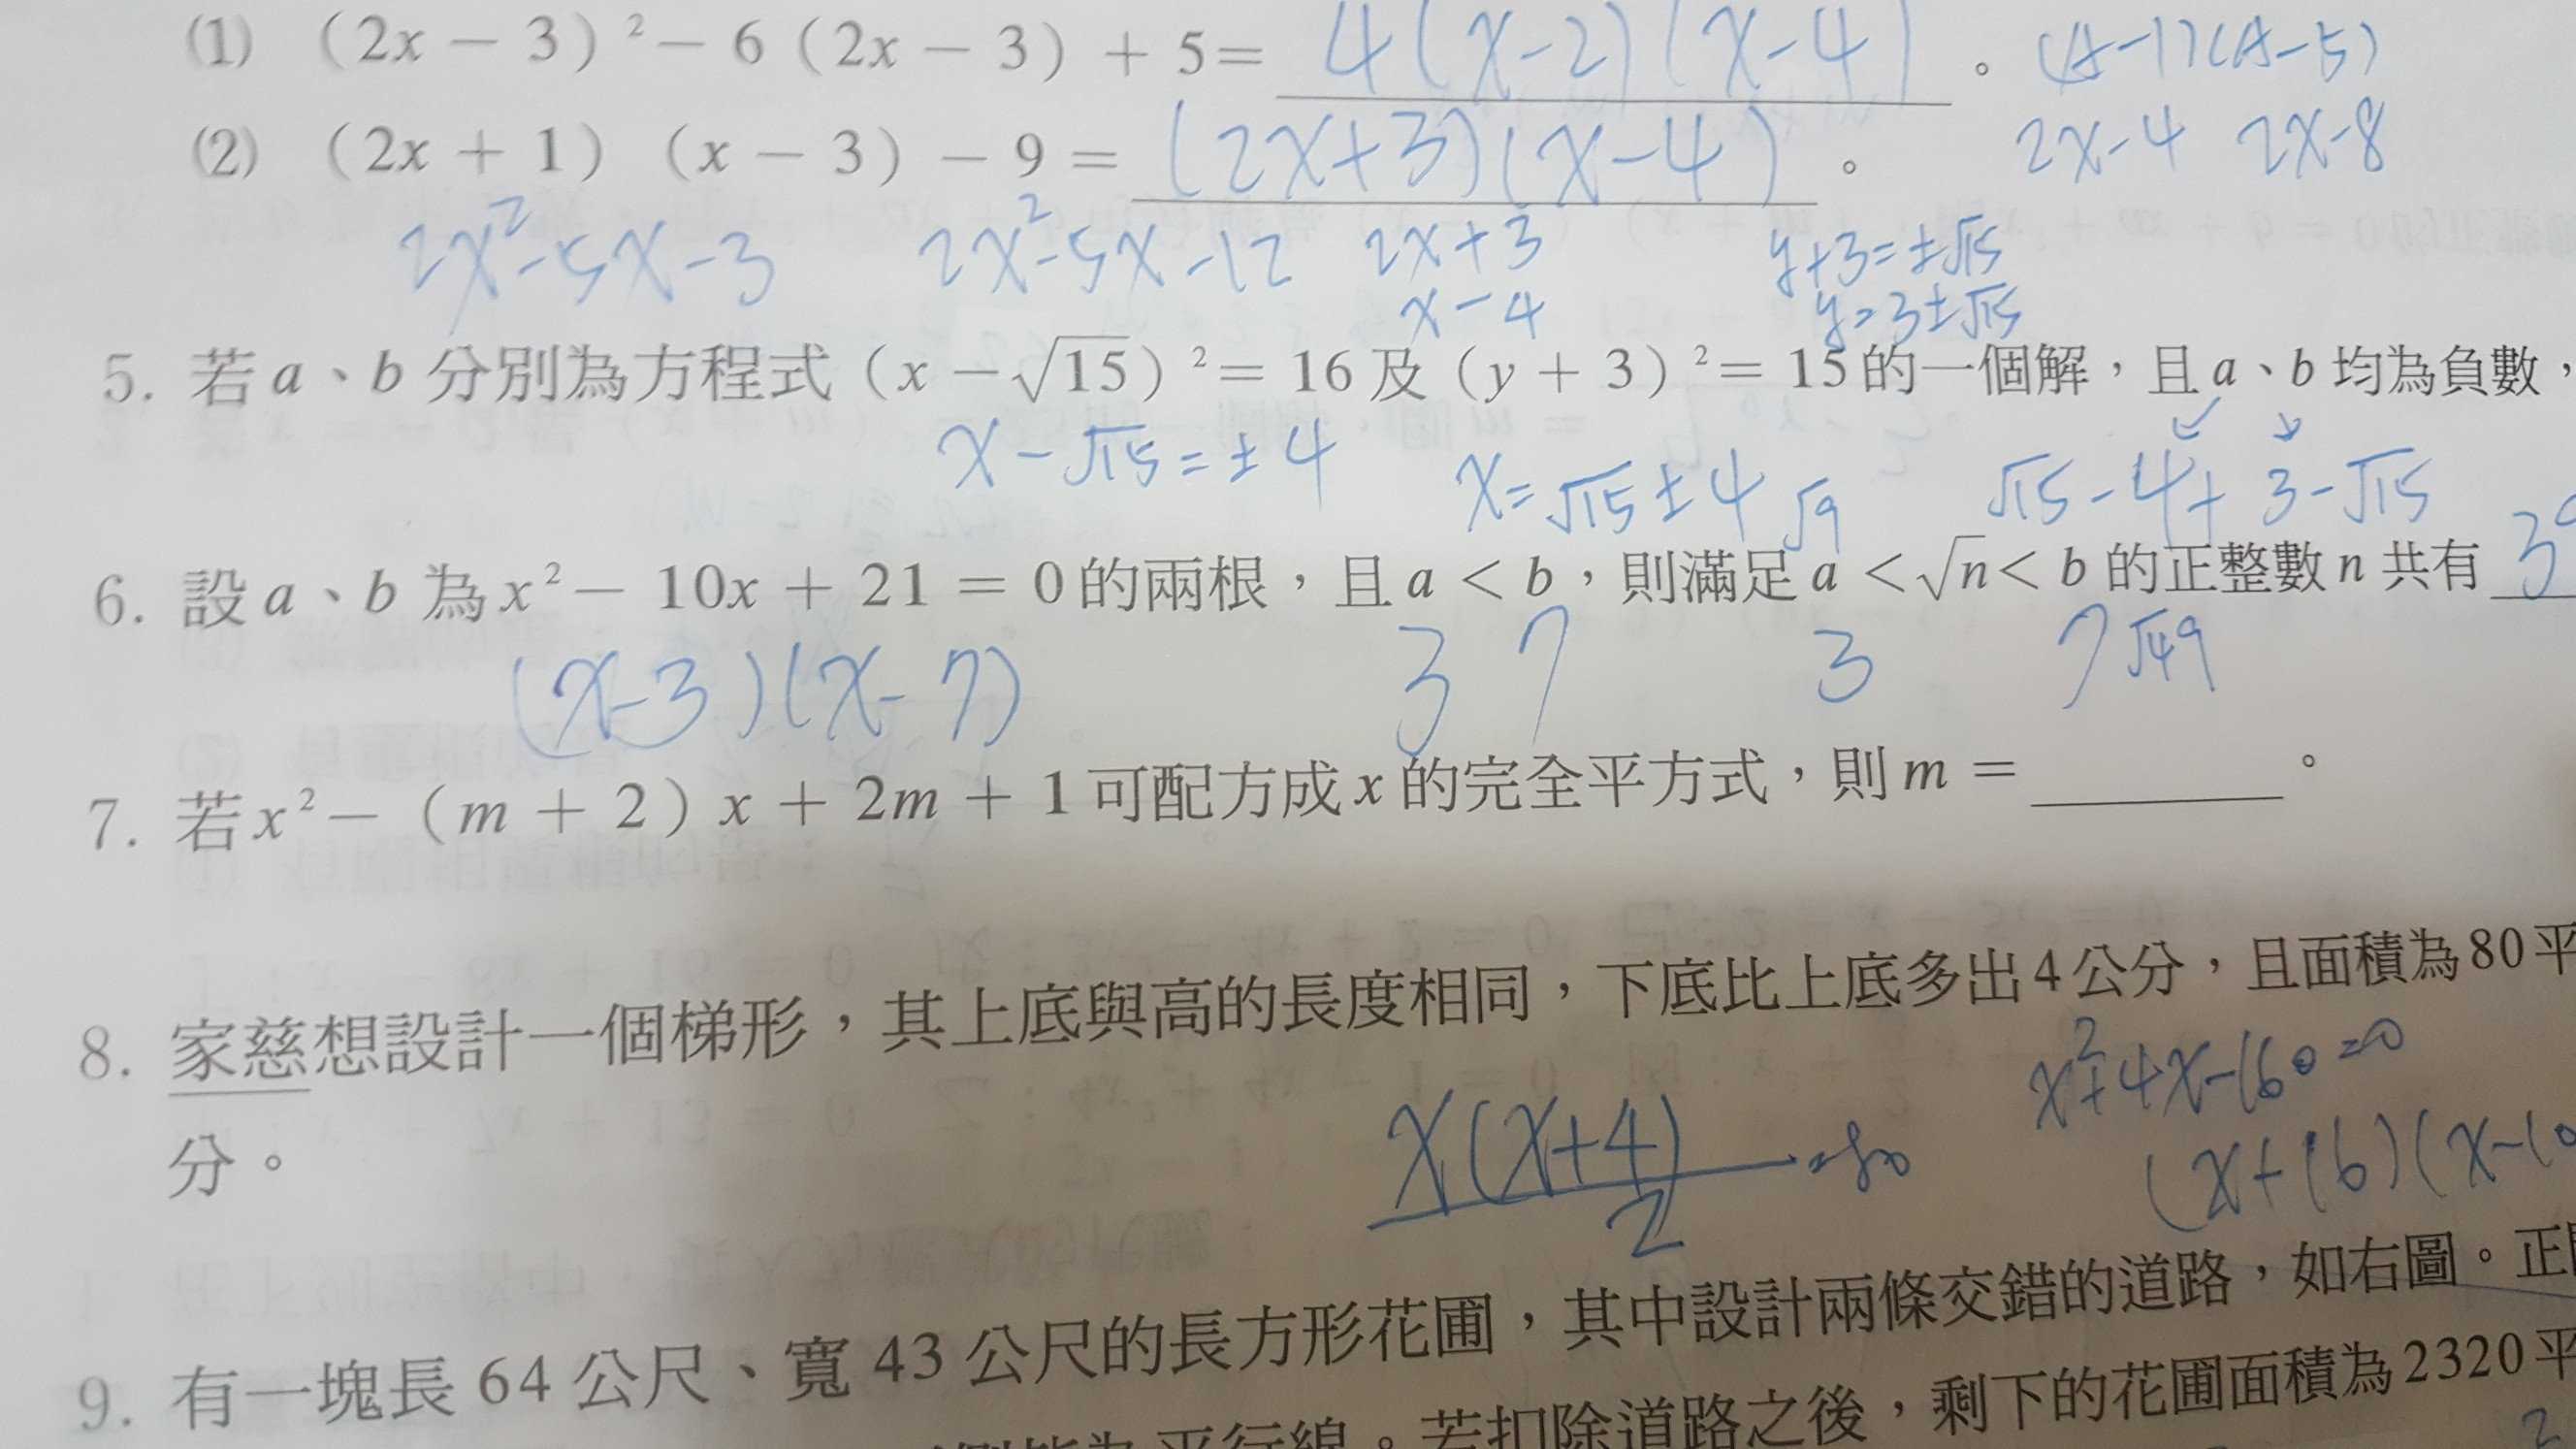 (1) (2x − 3)² − 6(2x − 3) + 5 = 4(x-2)(x-4)。 (A-1)(A-5)
2x-4 2x-8
(2) (2x + 1)(x − 3) − 9 = (2x+3)(x-4)。
2x²-5x-3 2x²-5x-12 2x+3 y+3=±√15
x-4 y=3±√15
5. 若a、b分別為方程式(x − √15)² = 16及(y + 3)² = 15的一個解，且a、b均為負數，
x-√15=±4 x=√15±4 √15-4+3-√15
√9
6. 設a、b為x² − 10x + 21 = 0的兩根，且a < b，則滿足a < √n < b的正整數n共有
(x-3)(x-7) 3 7 3 7 √49
7. 若x² − (m + 2)x + 2m + 1可配方成x的完全平方式，則m = ______。
8. 家慈想設計一個梯形，其上底與高的長度相同，下底比上底多出4公分，且面積為80平
x²+4x-160=0
分。
x(x+4)/2=80 (x+16)(x-10
9. 有一塊長64公尺、寬43公尺的長方形花圃，其中設計兩條交錯的道路，如右圖。正
平行線。若扣除道路之後，剩下的花圃面積為2320平